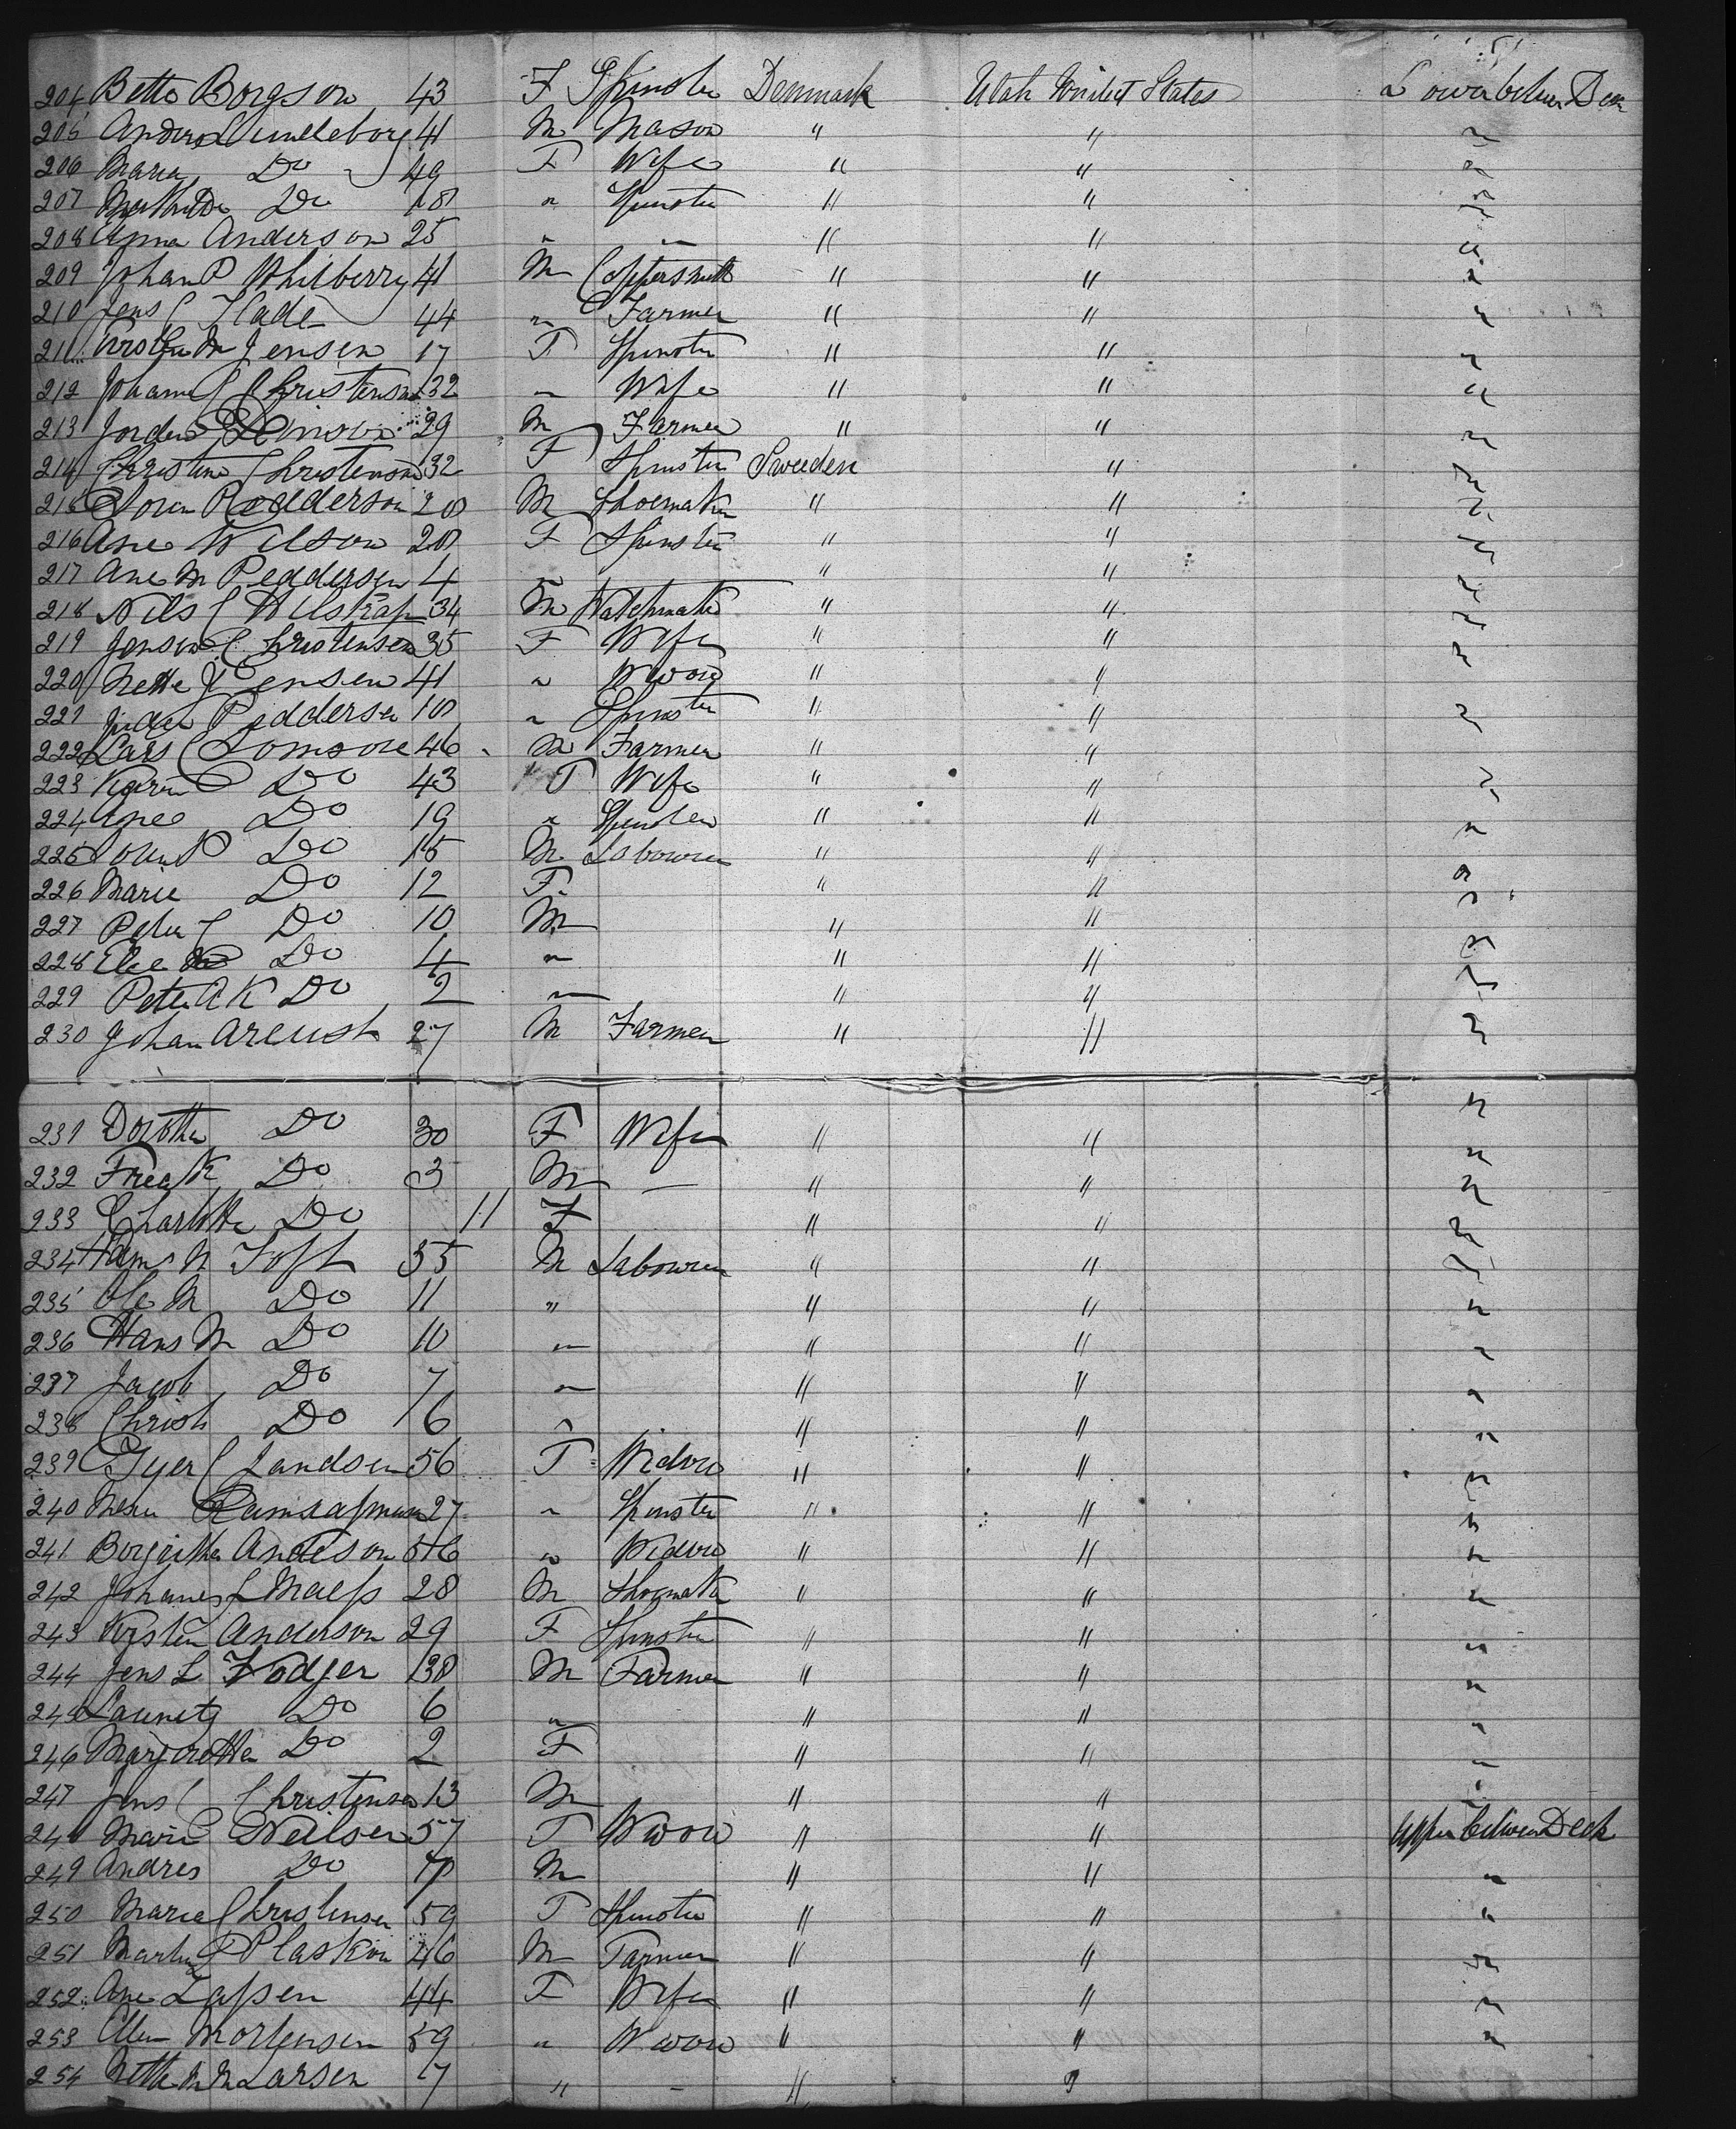 204 Betto Borgson 43 F Spinster Denmark Utah United States Lower between Deck
205 Anders Lundeborg 41 M Mason " " "
206 Maria Do 49 F Wife " " "
207 Mathilda Do 18 " Spinster " " "
208 Anna Anderson 25 " " " " "
209 Johan P Whilberry 41 M Coppersmith " " "
210 Jens C Flade 44 " Farmer " " "
211 M Jensen 17 F Spinster " " "
212 Johanne C Christensen 32 " Wife " " "
213 29 M Farmer " " "
214 Christine Christenson 32 F Spinster Sweeden " "
215 Soren Pedderson 28 M Shoemaker " " "
216 Ane Wilson 28 F Spinster " " "
217 Ane M Peddersen 4 " " " "
218 Nils C Wilstrap 34 M Watchmaker " " "
219 Jensine Christensen 35 F Wife " " "
220 Mette J Jensen 41 " Widow " " "
221 Peddersen 18 " Spinster " " "
222 Lars C Tomsone 46 M Farmer " "
223 Karin Do 43 F Wife " " "
224 Ane Do 19 " Spinster " " "
225 P Do 15 M Labourer " "
226 Marie Do 12 F " " "
227 Peter C Do 10 M " " "
228 Do 4 " " " "
229 Peter A K Do 2 " " " "
230 Johan Areush 27 M Farmer " " "
231 Dorothea Do 30 F Wife " " "
232 K Do 3 M — " " "
233 Charlotte Do 11 F " " "
234 Hans N Toft 55 M Labourer " " "
235 Ole M Do 11 " " " "
236 Hans M Do 10 " " " "
237 Jacob Do 7 " " " "
238 Christ Do 6 " " " "
239 C Jandsen 56 F Widow " " "
240 27 " Spinster " " "
241 Borjritha Anderson 56 " Widow " " "
242 Johanes L Maess 28 M Shoemaker " " "
243 Kirsten Anderson 29 F Spinster " " "
244 Jens L Fodjer 38 M Farmer " " "
245 Launitz Do 6 " " " "
246 Margrotha Do 2 F " " "
247 Jens C Christensen 13 M " " "
248 Marie Neilsen 57 F Widow " " Upper between Deck
249 Andres Do M " " "
250 Marie Christensen 59 F Spinster " " "
251 Martin P Plaskon 46 M Farmer " " "
252 Ane Lassen 44 F Wife " " "
253 Ellen Mortensen 59 " Widow " " "
254 Mette M Larsen 7 " - " "